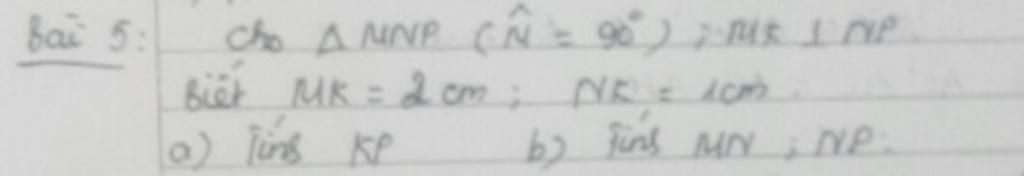 Bài 5: Cho Δ MNP (N̂ = 90°) ; MK ⊥ NP.
Biết MK = 2 cm ; NK = 1cm
a) Tính KP b) Tính MN ; NP.